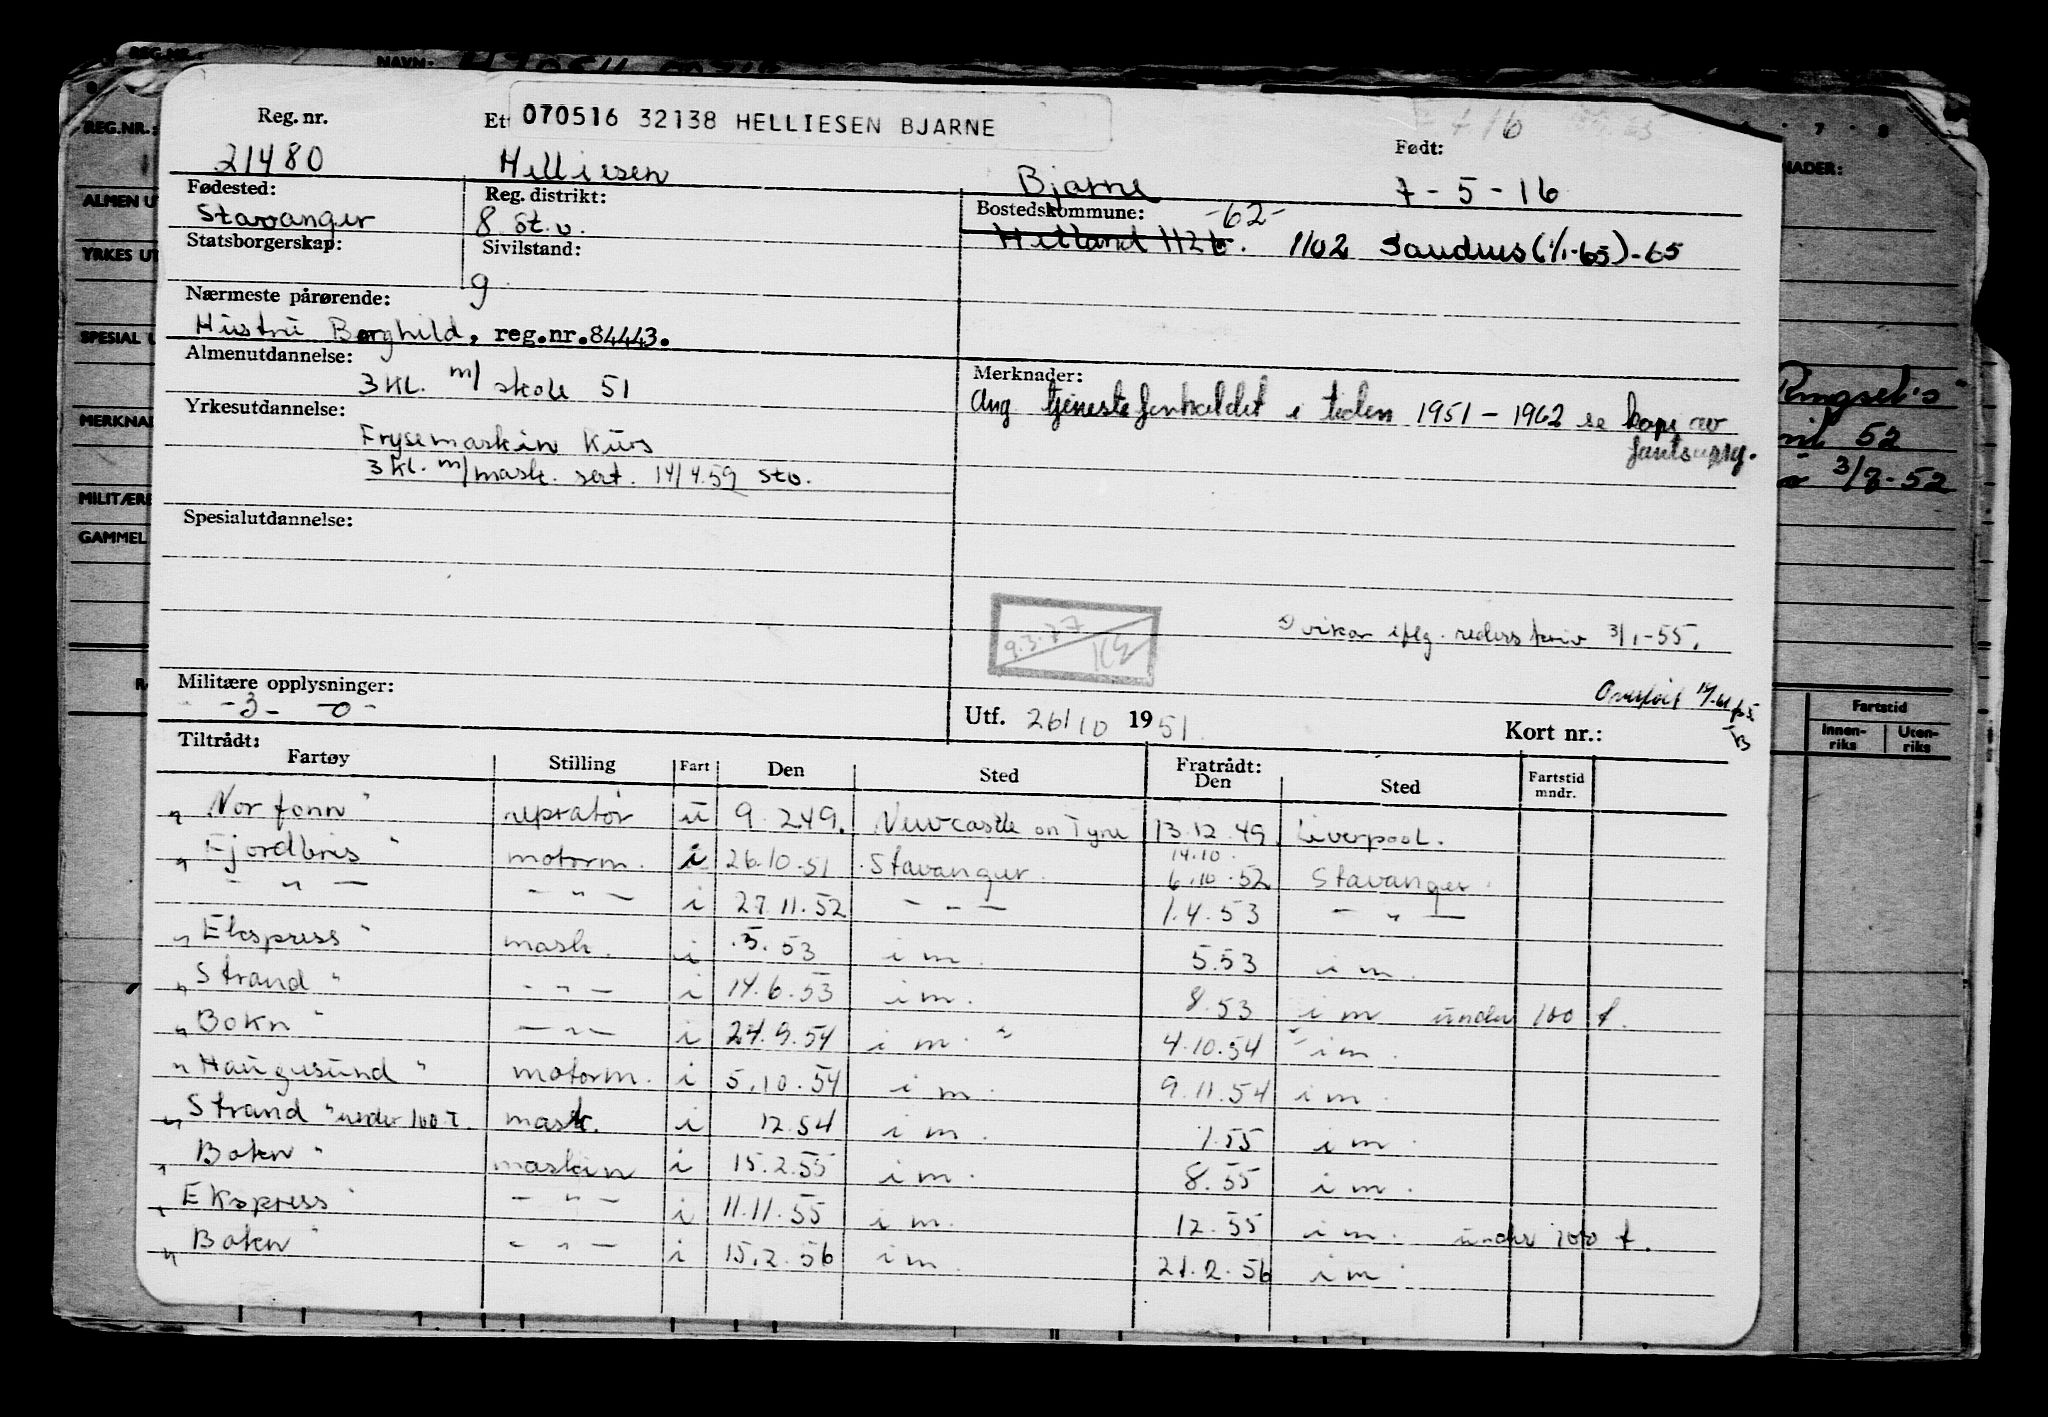 REG.NR.: NAVN:
REG.NR.:
ALMEN U
YRKES UT
SPESIAL
MERKNA
MILITÆRE
GAMMEL
070516 32138 HELLIESEN BJARNE
Reg. nr. Ett Født:
21480 Helliesen Bjarne 7-5-16
Fødested: Reg. distrikt: Bostedskommune: -62-
Stavanger 8 St.v. Hetland 1126. 1102 Sandnes (1/1-65)-65
Statsborgerskap: Sivilstand:
g
Nærmeste pårørende:
Hustru Borghild, reg.nr.84443.
Almenutdannelse: Merknader:
3 kl. m/ skole 51 Ang tjenesteforholdet i tiden 1951 - 1962 se kopi av
Yrkesutdannelse: fartsoppg.
Frysemaskin kurs
3 kl. m/mask. sert. 14/4.59 Sto.
Spesialutdannelse:
9.3.77
vikar iflg. reders skriv 3/1-55.
Militære opplysninger:
-3- -0-
Utf. 26/10 1951. Kort nr.:
Tiltrådt: Fratrådt:
Fartøy Stilling Fart Den Sted Den Sted Fartstid mndr.
"Norfonn" repratør u 9.2.49. Newcastle on Tyne 13.12.49. Liverpool.
14.10.
"Fjordbris" motorm. i 26.10.51 Stavanger. 6.10.52 Stavanger.
- " - - " - i 27.11.52 - - - 1.4.53 - " -
"Ekspress" mask. i .5.53 i m. 5.53 i m.
"Strand" - " - i 14.6.53 i m. 8.53 i m under 100 t.
"Bokn" - " - i 24.9.54 i m. " 4.10.54 " i m.
"Haugesund" motorm. i 5.10.54 i m. 9.11.54 i m.
"Strand" under 100 T. mask. i 12.54 i m. 1.55 i m.
"Bokn" maskin i 15.2.55 i m. 8.55 i m.
"Ekspress" - " - i 11.11.55 i m. 12.55 i m. under 100 t.
"Bokn" - " - i 15.2.56 i m. 21.2.56 i m.
NADER:
Ringsel's"
52
3/7-52
Fartstid
Innen-riks Uten-riks